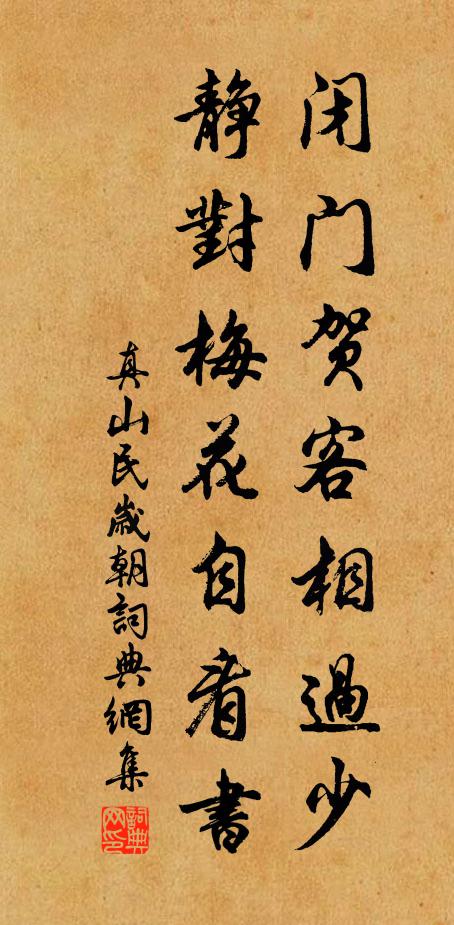 闭门贺客相過少
静對梅花自看書
真山民歲朝詞典網集
詞典网印